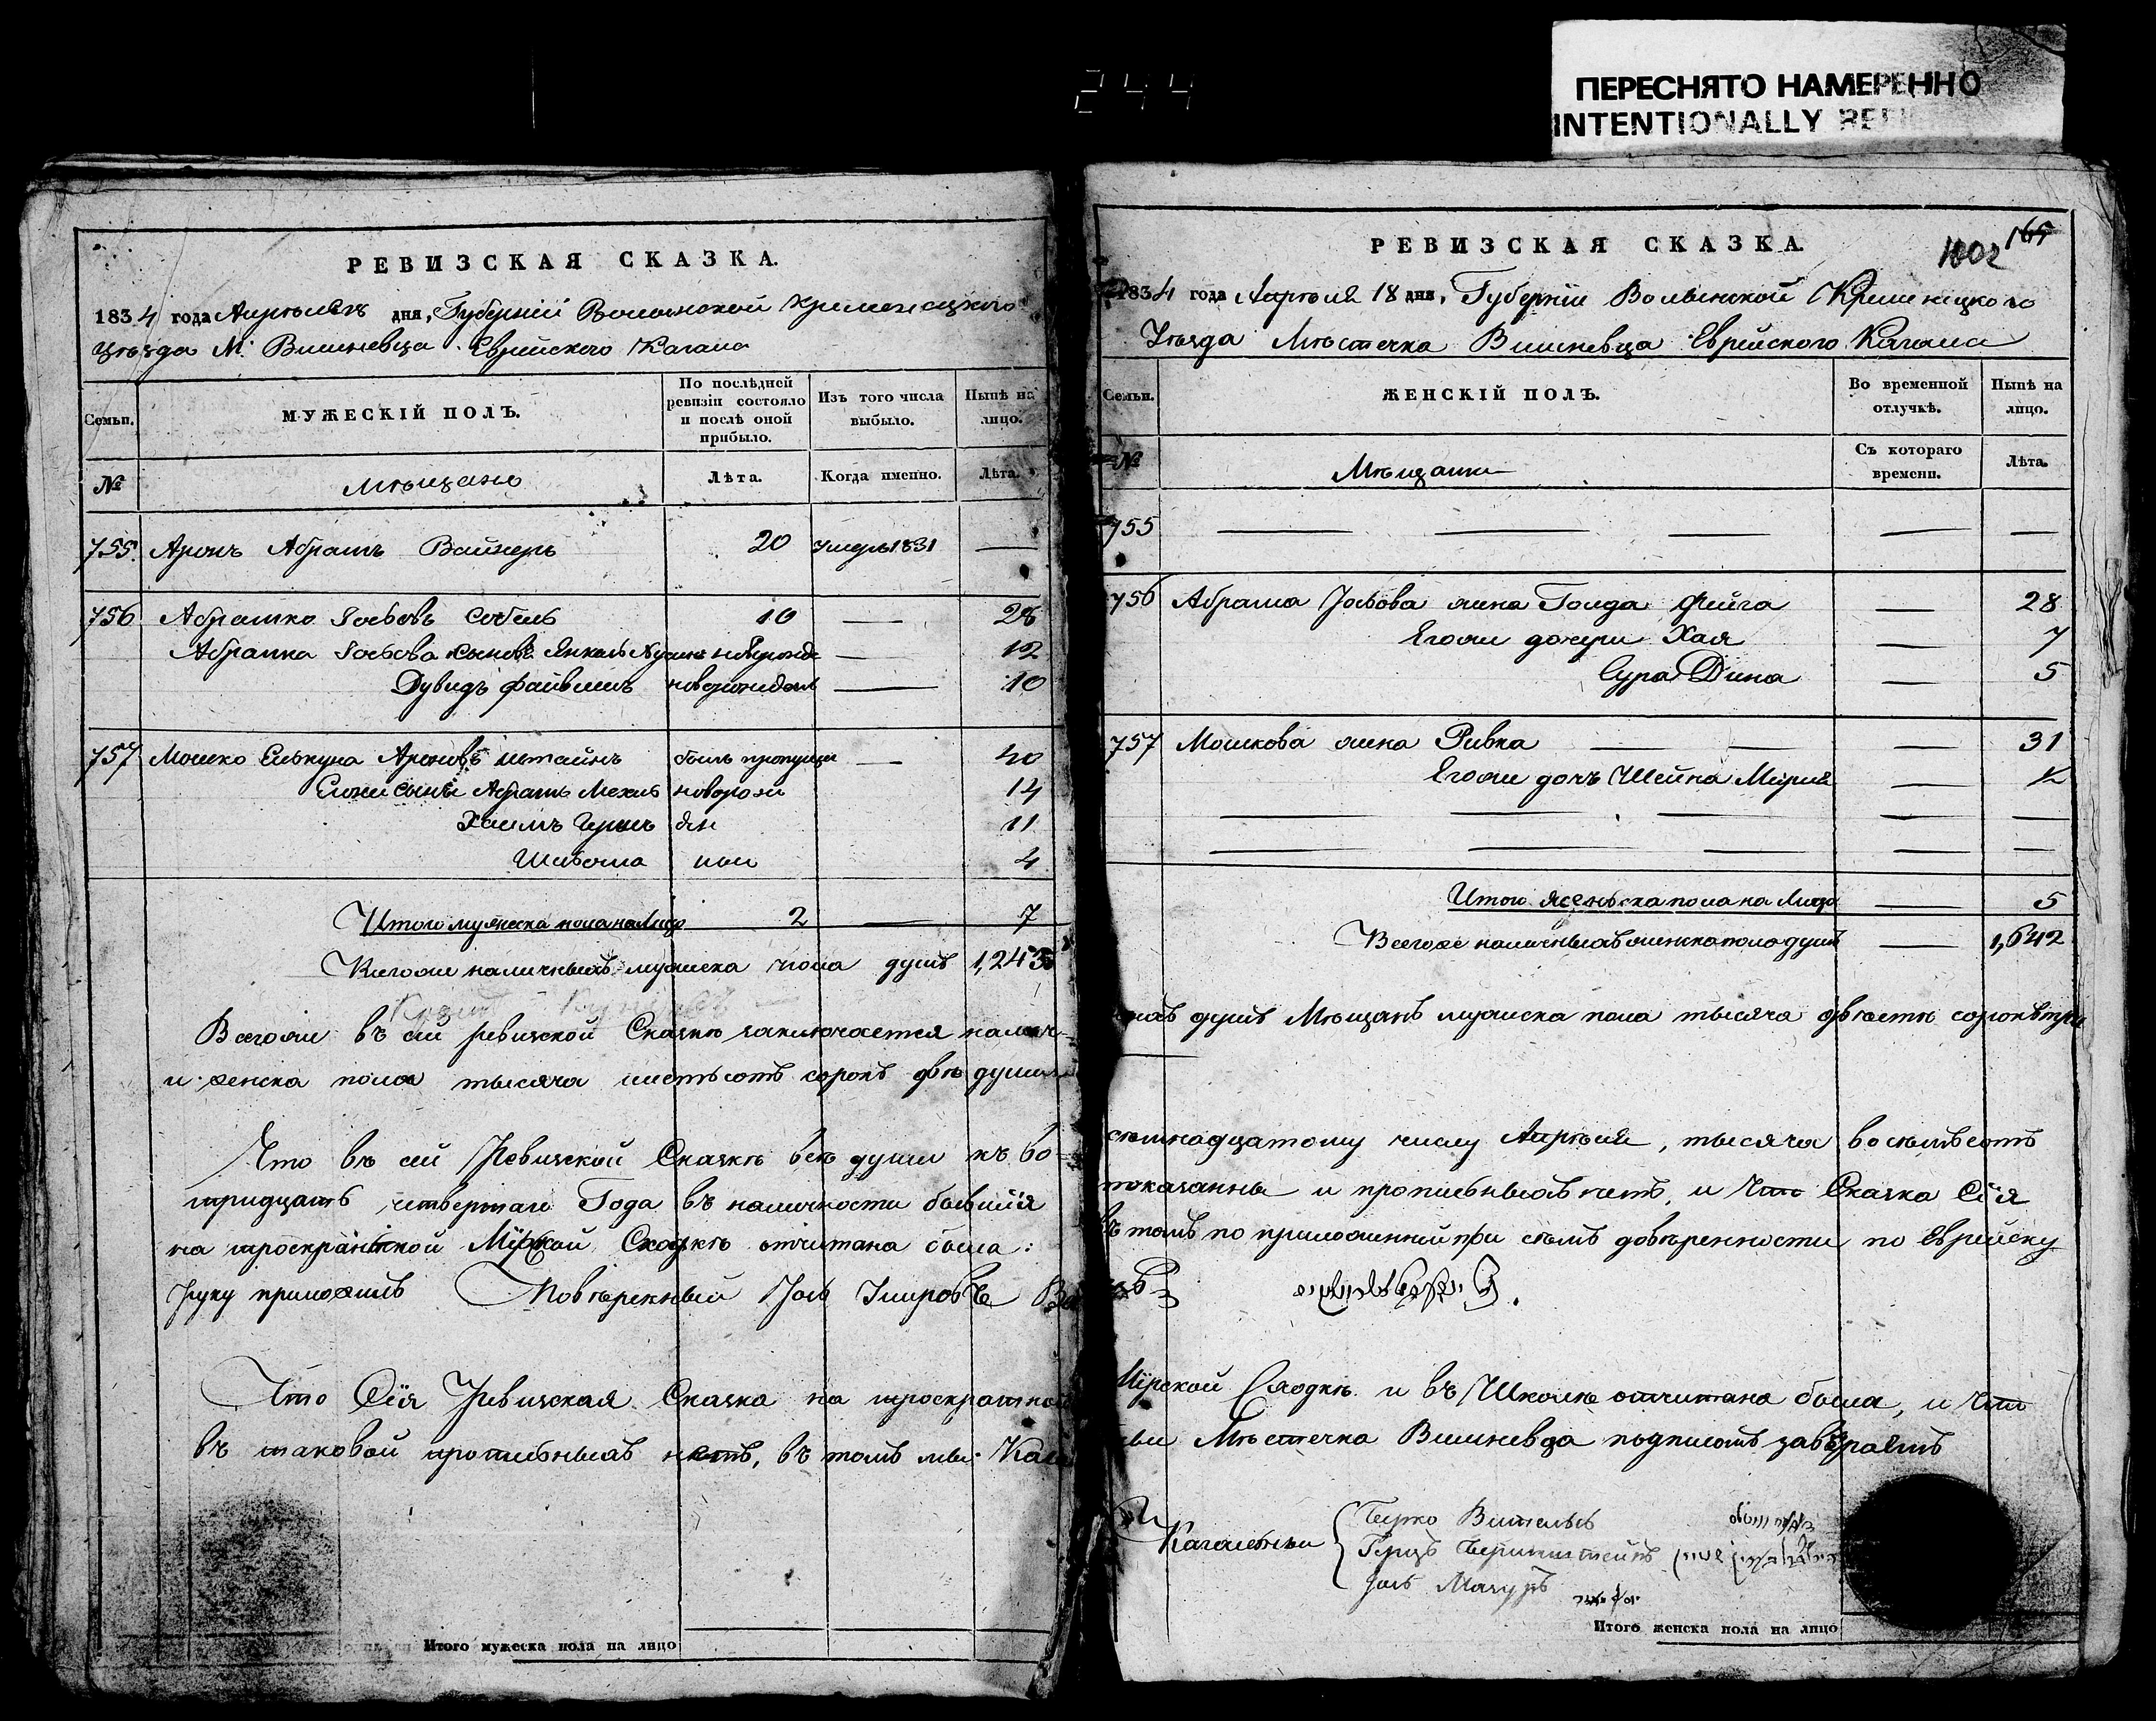 244
ПЕРЕСНЯТО НАМЕРЕННО
INTENTIONALLY
РЕВИЗСКАЯ СКАЗКА.
1834 года Апрѣля дня, Губерніи Волынской Кременецкого
Уѣзда М. Вишневца Еврейского Кагала
Семьи.
МУЖЕСКІЙ ПОЛЪ.
По послѣдней ревизіи состояло и послѣ оной прибыло.
Изъ того числа выбыло.
Нынѣ на лицо.
№
Мѣщане
Лѣта.
Когда именно.
Лѣта.
755. Аронъ Абрамъ Вайнеръ 20 умеръ 1831 —
756 Абрамко Іосьовъ 10 — 28
Абрамка Іосьова сыновья Янкель — 12
Дувидъ Файвишъ новорожден — 10
757 Мошко Елькуна Ароновъ Штайнъ былъ пропущен — 40
Егоже сыны Абрамъ Мехль новорож 14
Хаимъ Гершъ ден 11
Шлiома ныи 4
Итого мужеска пола на Лицо 2 — 7
Всегоже наличныхъ мужеска пола душъ 1,243
Всегоже въ сей ревизской Сказкѣ заключается налич-
и женска пола тысяча шестьсотъ сорокъ двѣ души
Что въ сей Ревизской Сказкѣ всѣ души къ во-
тридцать четвертаго Года въ наличности бывшія
на троекратной Мірской Сходкѣ отчитана была:
руку приложилъ Повѣренный Іось
Что Сія Ревизская Сказка на троекратной
въ таковой прописныхъ нетъ, въ томъ мы Кага
Итого мужеска пола на лицо
РЕВИЗСКАЯ СКАЗКА.
1002 165
1834 года Апрѣля 18 дня, Губерніи Волынской Кременецкого
Уѣзда Мѣстечка Вишневца Еврейского Кагала
Семьи.
ЖЕНСКІЙ ПОЛЪ.
Во временной отлучкѣ.
Нынѣ на лицо.
№
Мѣщане
Съ котораго времени.
Лѣта.
755 — — — — —
756 Абрама Іосьова жена Голда Фейга — 28
Егоже дочери Хая — 7
Сура Дина — 5
757 Мошкова жена Ривка — — — 31
Егоже дочь Шейна Мирля ½
— — — — —
— — — — —
Итого женьска пола на Лицо — 5
Всегоже наличныхъ женска пола душъ — 1,642
ныхъ душъ Мѣщанъ мужеска пола тысяча двѣсти сорокъ три
семнадцатому числу Апрѣля, тысяча восемьсотъ
показанны и прописныхъ нетъ, и что Сказка Сія
въ томъ по приложенной при семъ довѣренности по Еврейску
Мірской Сходкѣ и въ Школѣ отчитана была, и что
ные Мѣстечка Вишневца подписомъ завѣраемъ
Кагальныи
Берко Вительсъ
Герцъ Бернштейнъ
Іось Мазуръ
Итого женска пола на лицо